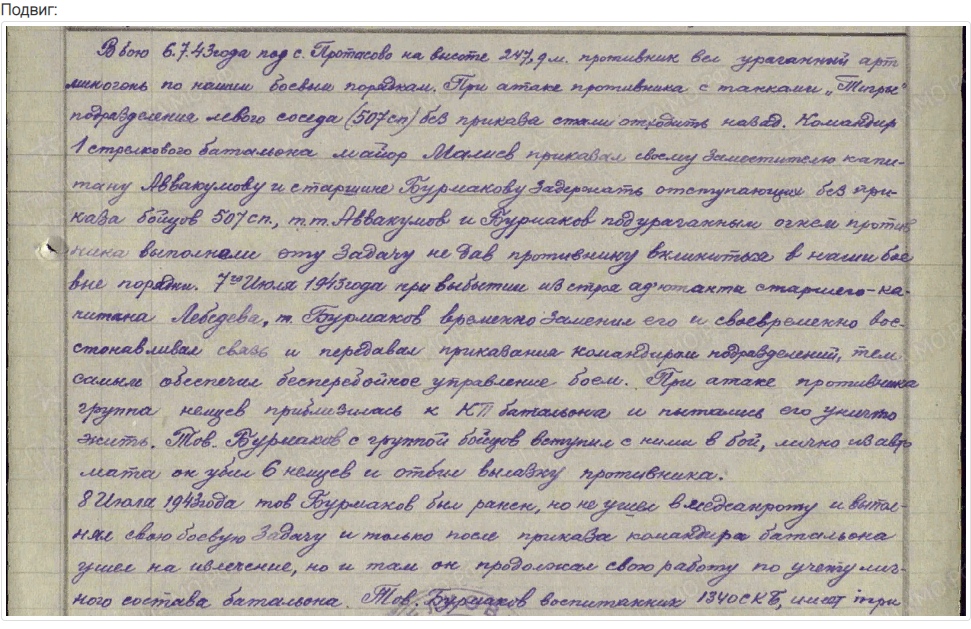 Подвиг:
В бою 6.7.43 года под с. Протасово на высоте 247,9 м. противник вел ураганный арт
миногонь по нашим боевым порядкам. При атаке противника с танками „Тигры"
подразделения левого соседа (507 сп) без приказа стали отходить назад. Командир
1 стрелкового батальона майор Малиев приказал своему заместителю капи-
тану Аввакумову и старшине Бурмакову задержать отступающих без при-
каза бойцов 507 сп., т.т. Аввакумов и Бурмаков под ураганным огнем против
ника выполнили эту задачу не дав противнику вклиниться в наши бое
вые порядки. 7го Июля 1943 года при выбытии из строя адъютанта старшего - ка-
питана Лебедева, т. Бурмаков временно заменил его и своевременно вос-
станавливал связь и передавал приказания командирам подразделений, тем
самым обеспечил бесперебойное управление боем. При атаке противника
группа немцев приблизилась к КП батальона и пытались его уничто
жить. Тов. Бурмаков с группой бойцов вступил с ними в бой, лично из авто
мата он убил 6 немцев и отбил вылазку противника.
8 Июля 1943 года тов Бурмаков был ранен, но не ушел в медсанроту и выпол-
нял свою боевую задачу и только после приказа командира батальона
ушел на излечение, но и там он продолжал свою работу по учету лич-
ного состава батальона. Тов. Бурмаков воспитанник 1340 СКБ, имеет три